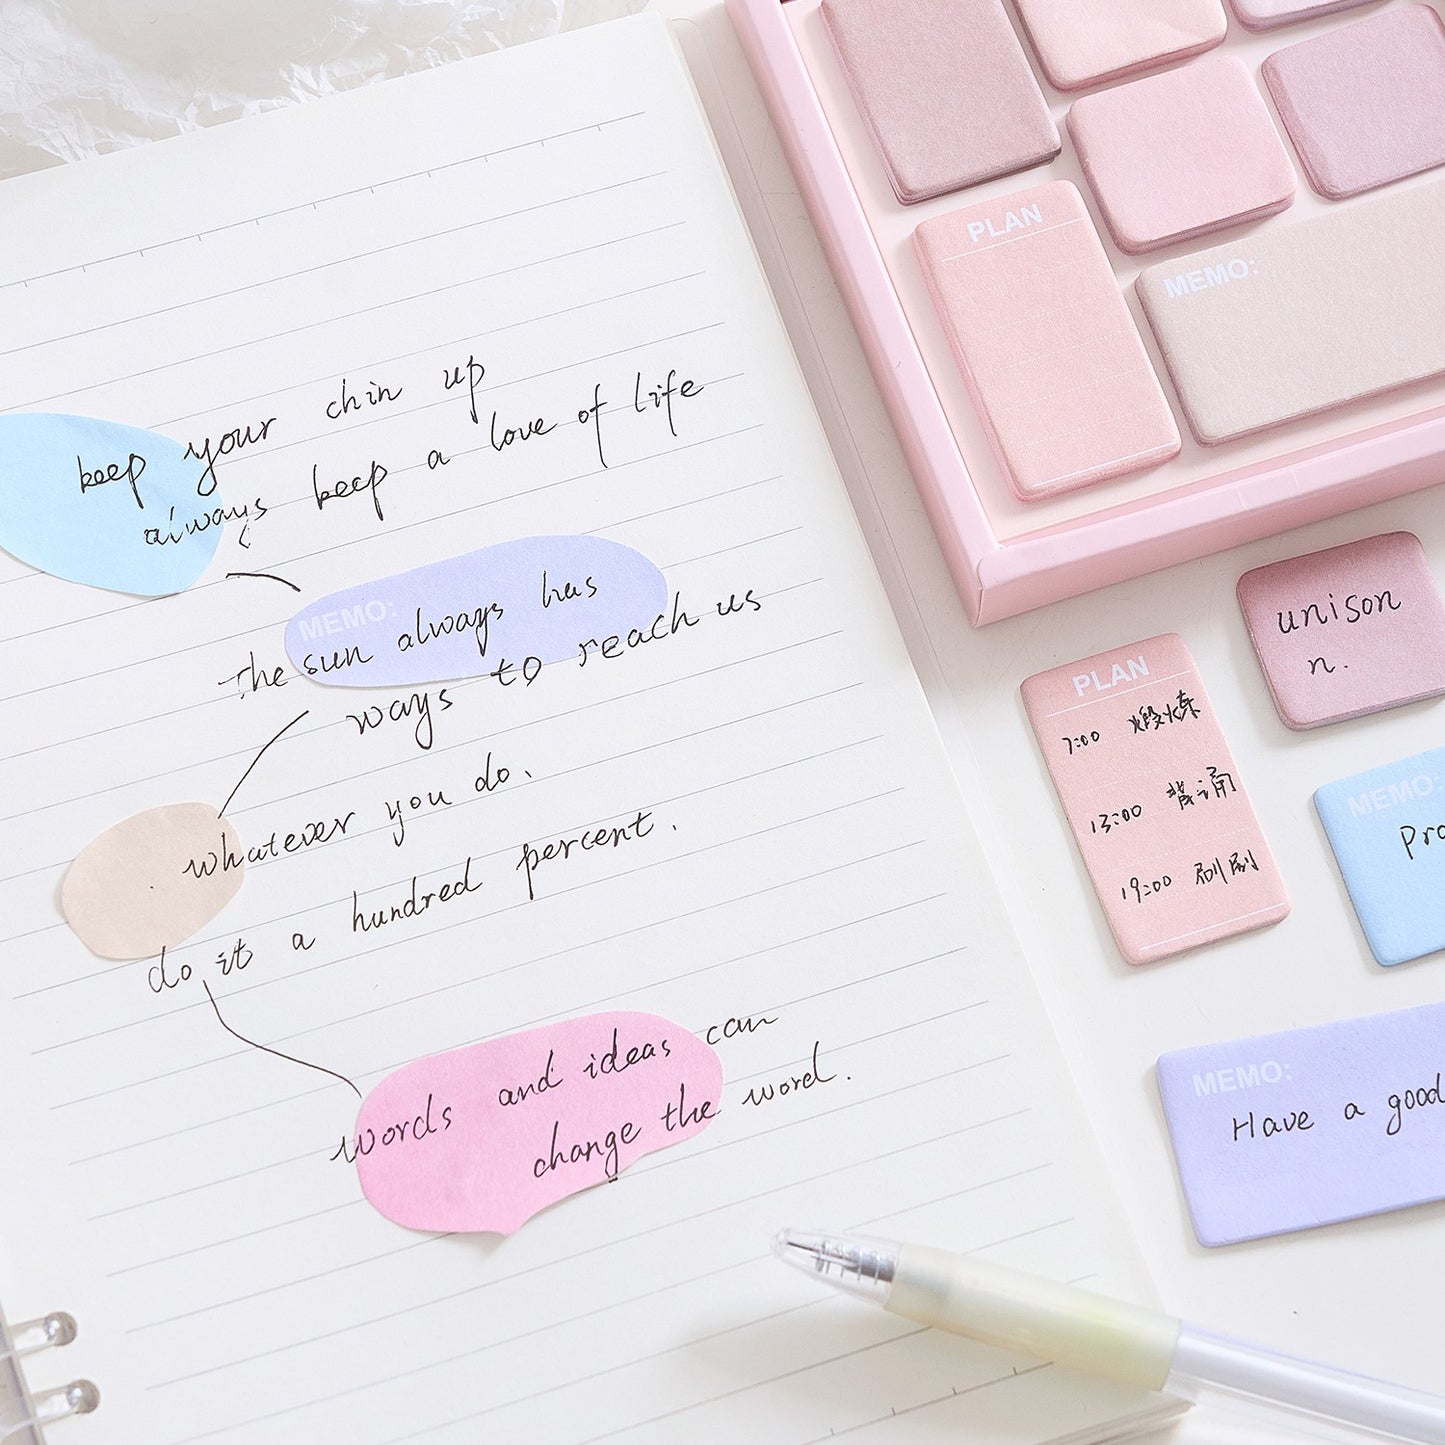 keep your chin up
always keep a love of life
MEMO:
the sun always has
ways to reach us
whatever you do.
do it a hundred percent.
words and ideas can
change the word.
PLAN
MEMO:
unison
n.
PLAN
7:00 煅炼
13:00 背诵
19:00 刷剧
MEMO:
Pro
MEMO:
Have a good